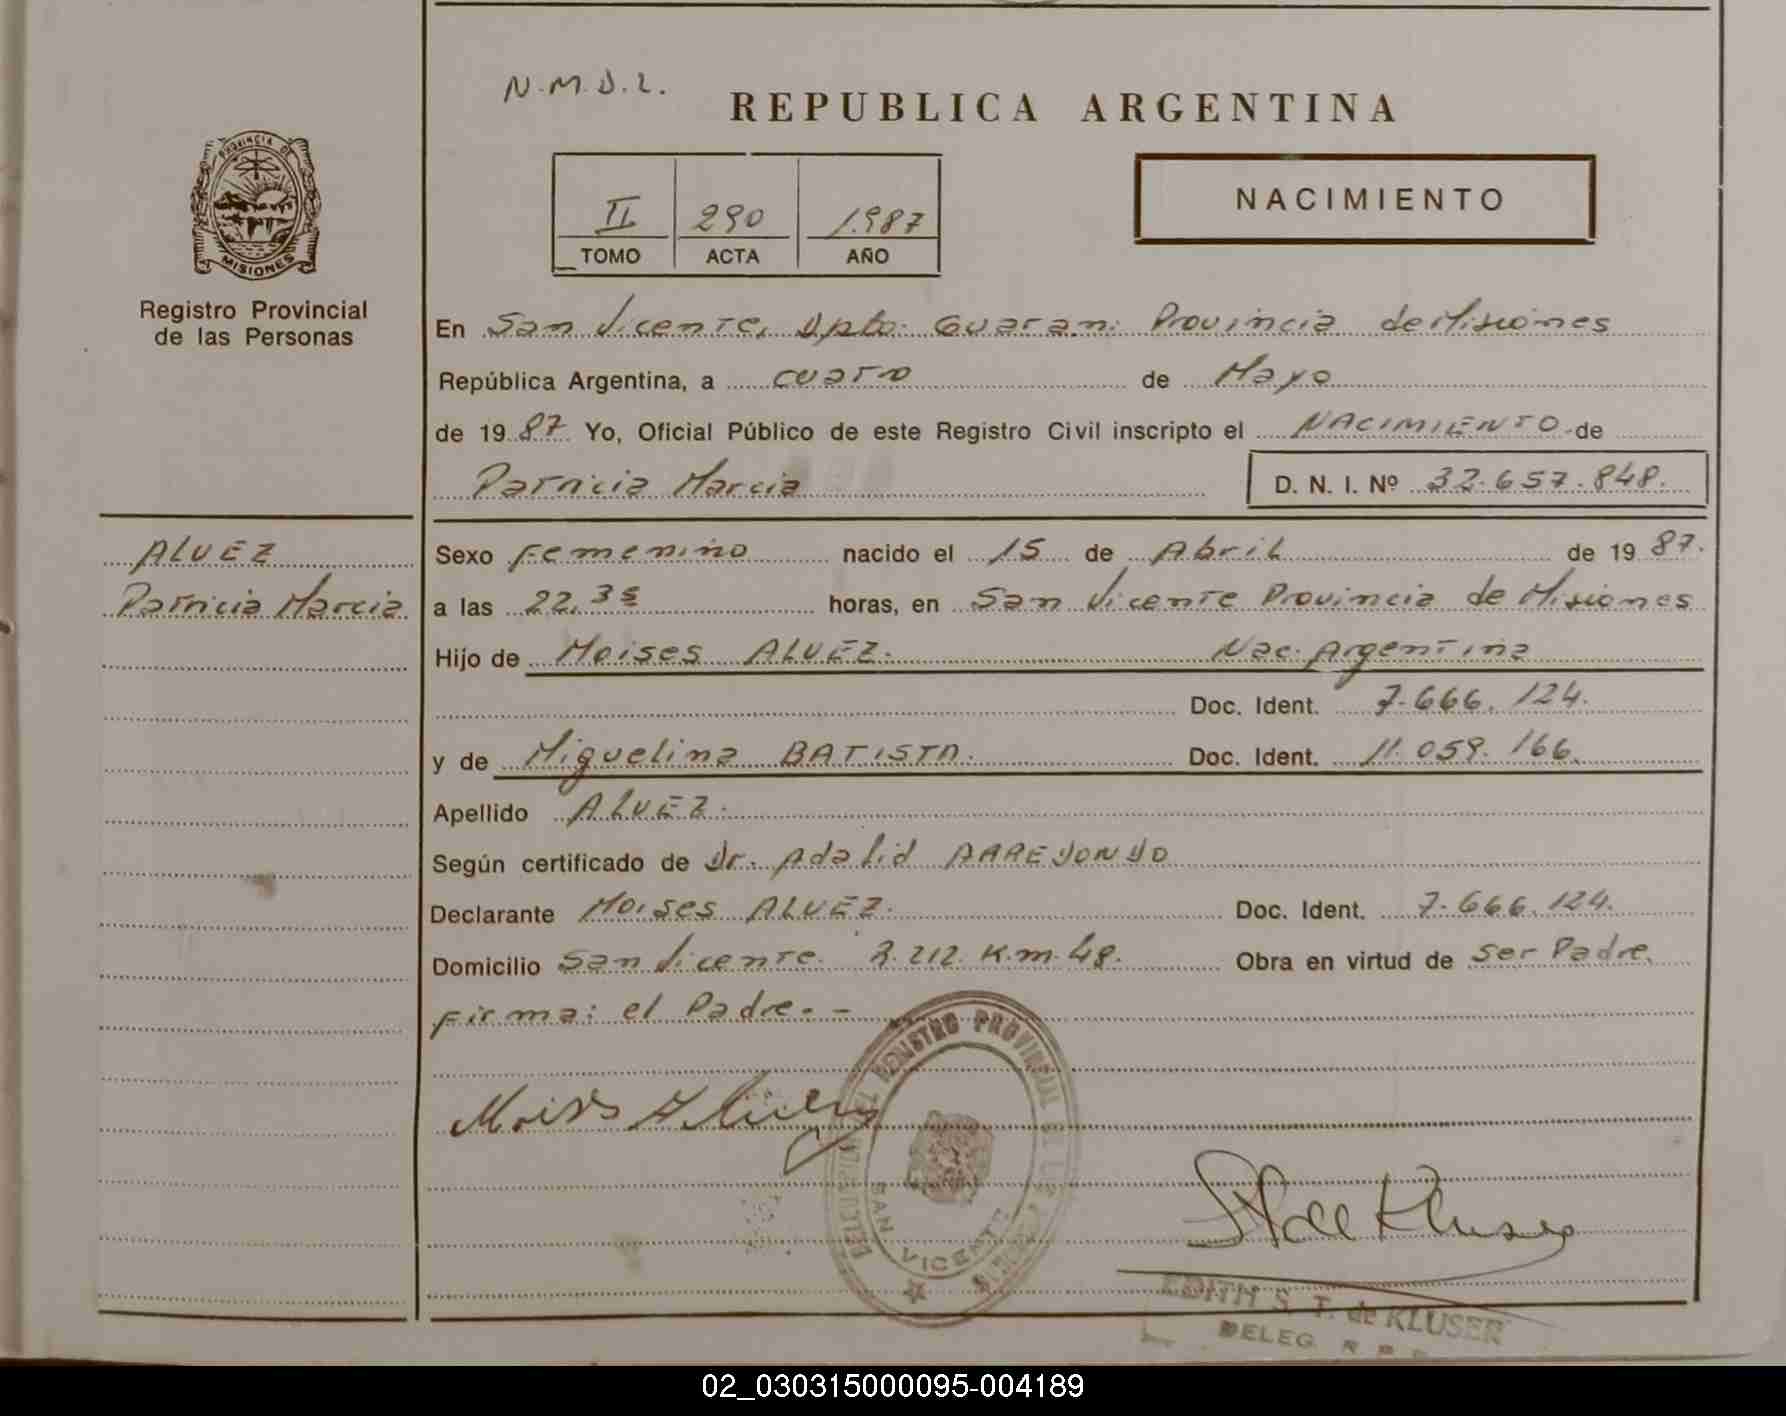 N.M.D.L.
REPUBLICA ARGENTINA
PROVINCIA DE
MISIONES
Registro Provincial
de las Personas
II 290 1.987
TOMO ACTA AÑO
NACIMIENTO
En San Vicente, Dpto: Guarani Provincia de Misiones
República Argentina, a cuatro de Mayo
de 1987 Yo, Oficial Público de este Registro Civil inscripto el NACIMIENTO de
Patricia Marcia D. N. I. Nº 32.657.848.
ALVEZ
Patricia Marcia
Sexo Femenino nacido el 15 de Abril de 1987.
a las 22,35 horas, en San Vicente Provincia de Misiones
Hijo de Moises ALVEZ. Nac. Argentina
Doc. Ident. 7.666.124.
y de Miguelina BATISTA. Doc. Ident. 11.059.166.
Apellido ALVEZ.
Según certificado de Dr. Adalid ARREDONDO
Declarante Moises ALVEZ. Doc. Ident. 7.666.124.
Domicilio San Vicente. R.212. K.m.48. Obra en virtud de ser Padre.
Firma: el Padre.-
Moises Alvez
REGISTRO PROVINCIAL DE LAS PERSONAS
SAN VICENTE
EDITH S. T. de KLUSER
DELEG. R. P. P.
02_030315000095-004189